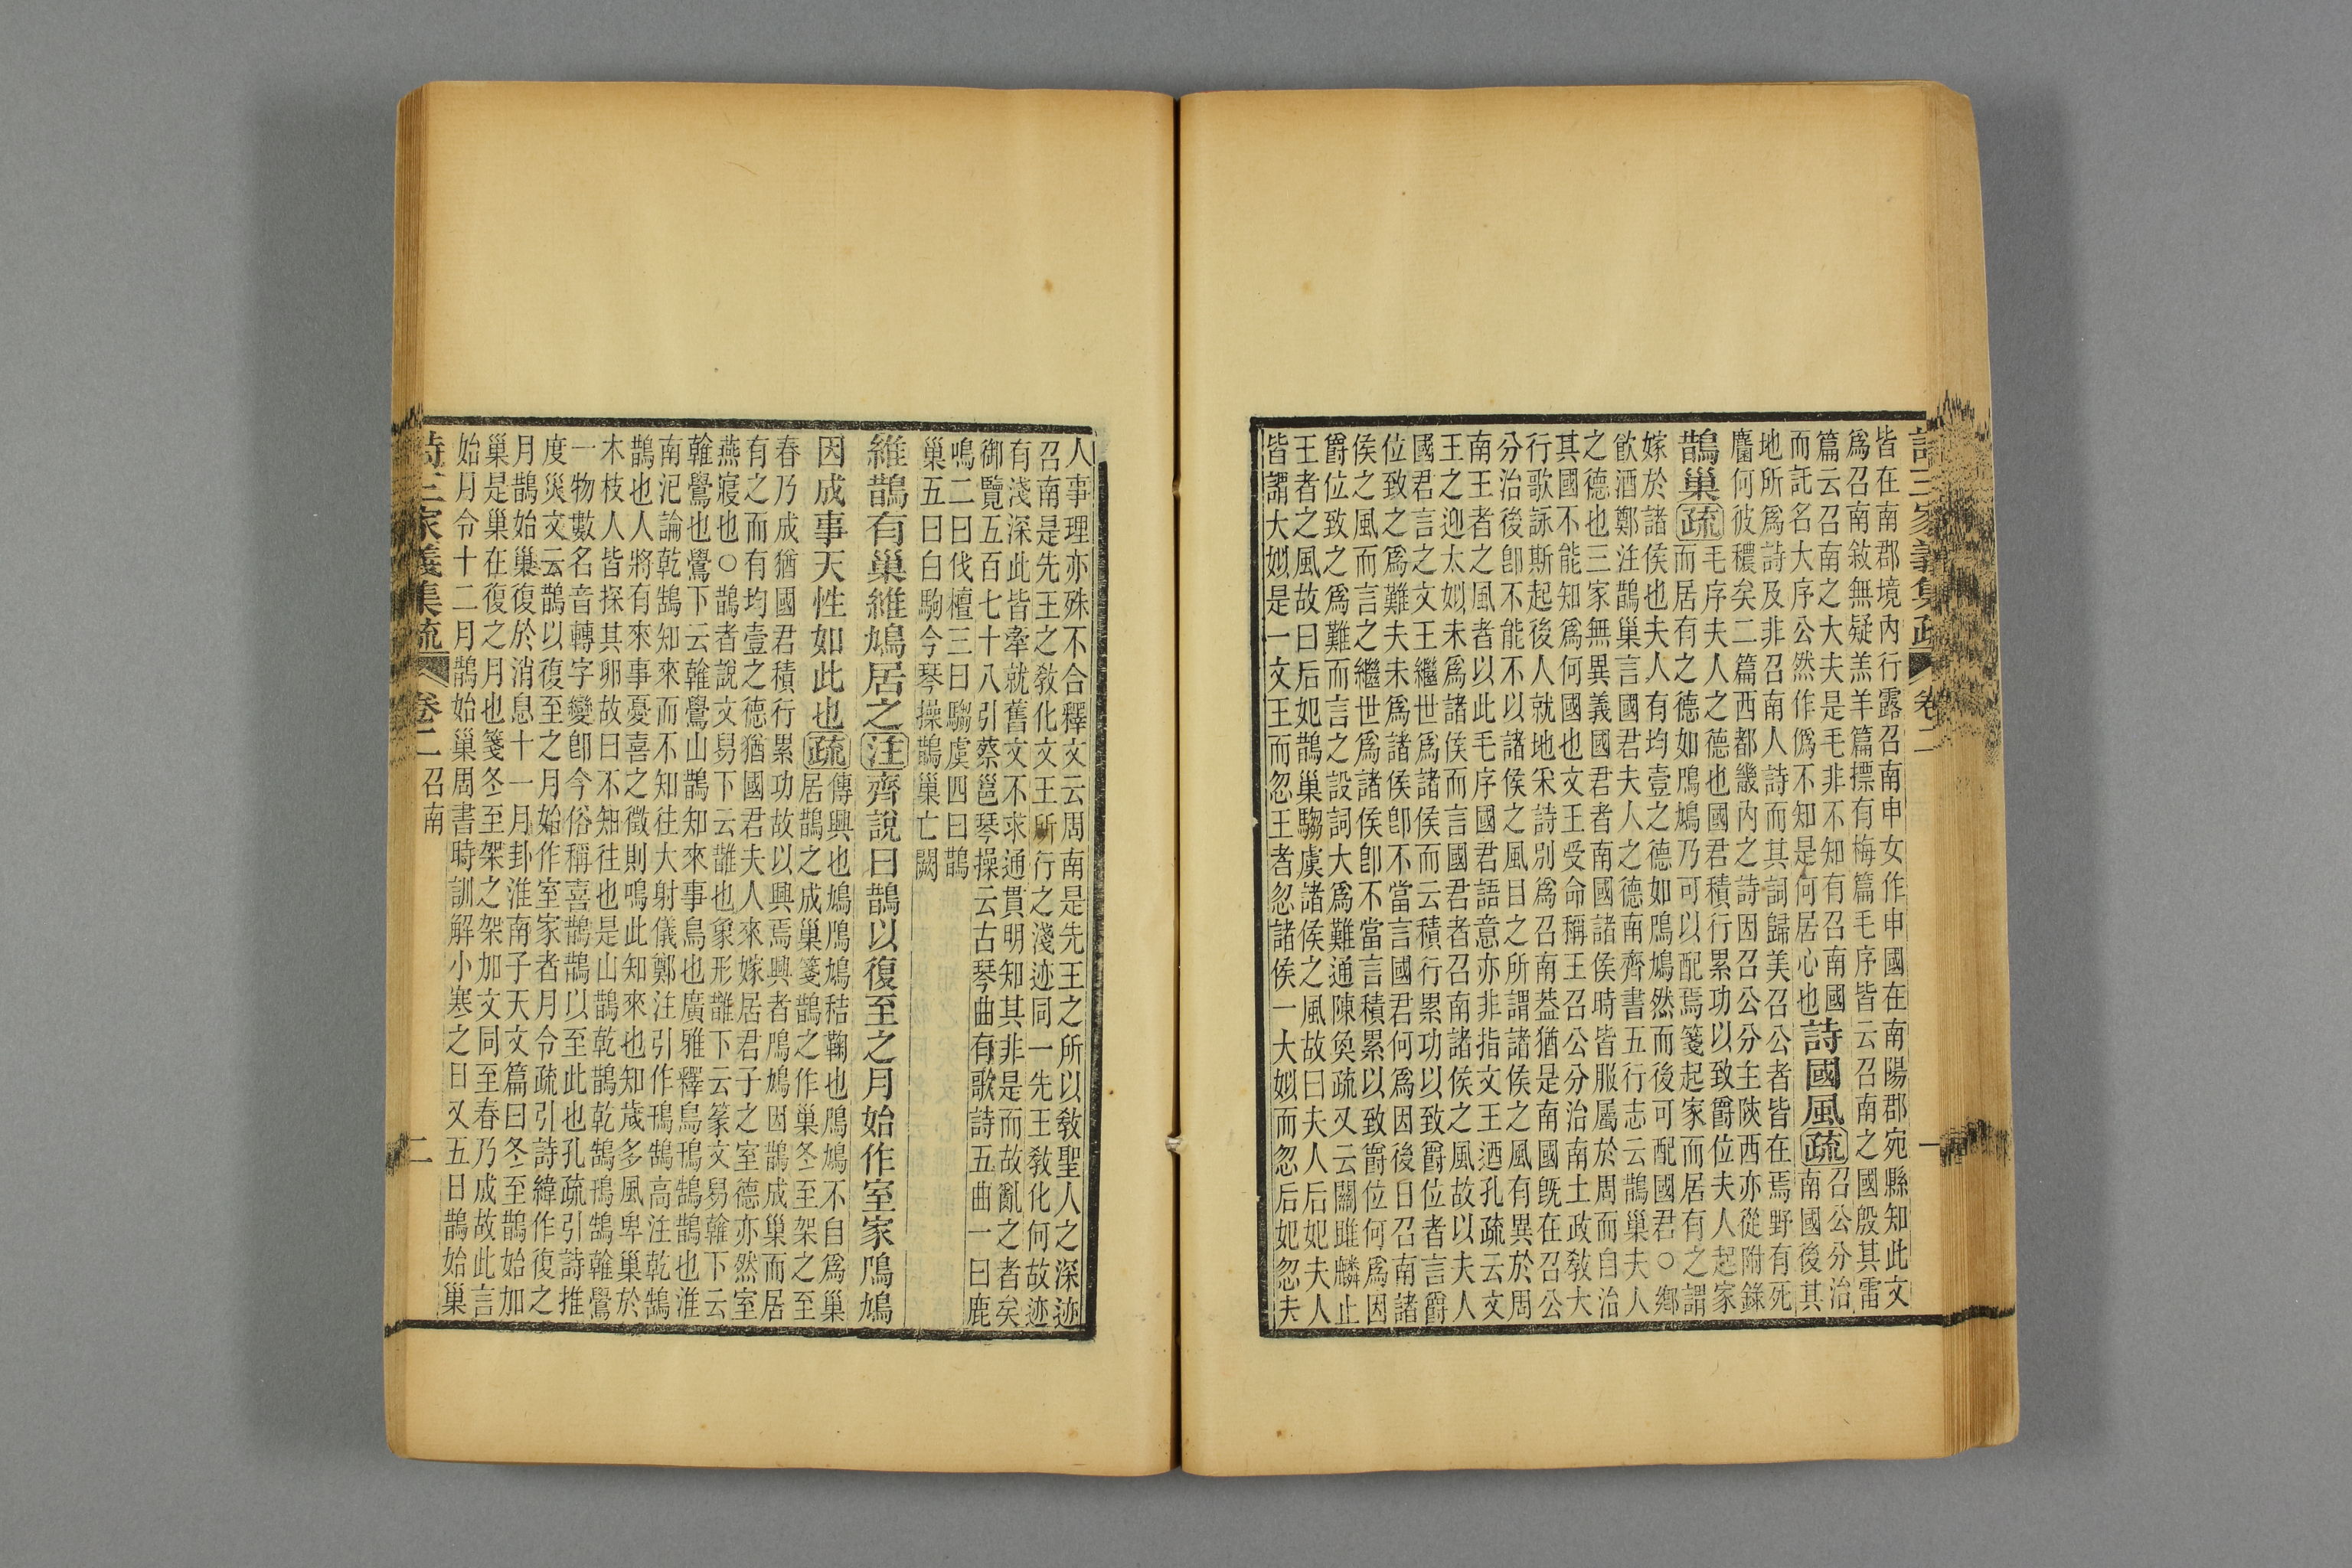 詩三家義集疏　卷二　一
皆在南郡境內行露召南申女作申國在南陽郡宛縣知此文
爲召南敘無疑羔羊篇摽有梅篇毛序皆云召南之國殷其雷
篇云召南之大夫是毛非不知有召南國
而託名大序公然作僞不知是何居心也
詩國風疏召公分治
南國後其
地所爲詩及非召南人詩而其詞歸美召公者皆在焉野有死
麕何彼穠矣二篇西都畿內之詩因召公分主陝西亦從附錄
鵲巢疏毛序夫人之德也國君積行累功以致爵位夫人起家
而居有之德如鳲鳩乃可以配焉箋起家而居有之謂
嫁於諸侯也夫人有均壹之德如鳲鳩然而後可配國君○鄉
飲酒鄭注鵲巢言國君夫人之德南齊書五行志云鵲巢夫人
之德也三家無異義國君者南國諸侯時皆服屬於周而自治
其國不能知爲何國也文王受命稱王召公分治南土政敎大
行歌詠斯起後人就地采詩別爲召南葢猶是南國旣在召公
分治後卽不能不以諸侯之風目之所謂諸侯之風有異於周
南王者之風者以此毛序國君語意亦非指文王迺孔疏云文
王之迎太姒未爲諸侯而言國君者召南諸侯之風故以夫人
國君言之文王繼世爲諸侯而云積行累功以致爵位者言爵
位致之爲難夫未爲諸侯卽不當言國君何爲因後日召南諸
侯之風而言之繼世爲諸侯卽不當言積累以致爵位何爲因
爵位致之爲難而言之設詞大爲難通陳奐疏又云關雎麟止
王者之風故曰后妃鵲巢騶虞諸侯之風故曰夫人后妃夫人
皆謂大姒是一文王而忽王者忽諸侯一大姒而忽后妃忽夫
人事理亦殊不合釋文云周南是先王之所以敎聖人之深迹
召南是先王之敎化文王所行之淺迹同一先王敎化何故迹
有淺深此皆牽就舊文不求通貫明知其非是而故亂之者矣
御覽五百七十八引蔡邕琴操云古琴曲有歌詩五曲一曰鹿
鳴二曰伐檀三曰騶虞四曰鵲
巢五曰白駒今琴操鵲巢亡闕
維鵲有巢維鳩居之注齊說曰鵲以復至之月始作室家鳲鳩
因成事天性如此也疏傳興也鳩鳲鳩秸鞠也鳲鳩不自爲巢
居鵲之成巢箋鵲之作巢冬至架之至
春乃成猶國君積行累功故以興焉興者鳲鳩因鵲成巢而居
有之而有均壹之德猶國君夫人來嫁居君子之室德亦然室
燕寢也○鵲者說文舄下云䧿也象形䧿下云篆文舄雗下云
雗鷽也鷽下云雗鷽山鵲知來事鳥也廣雅釋鳥鳱鵠鵲也淮
南氾論乾鵠知來而不知往大射儀鄭注引作鳱鵠高注乾鵠
鵲也人將有來事憂喜之徵則鳴此知來也知歲多風卑巢於
木枝人皆探其卵故曰不知往也是山鵲乾鵲乾鵠鳱鵠雗鷽
一物數名音轉字變卽今俗稱喜鵲鵲以至此也孔疏引詩推
度災文云鵲以復至之月始作室家者月令疏引詩緯作復之
月鵲始巢復於消息十一月卦淮南子天文篇曰冬至鵲始加
巢是巢在復之月也箋冬至架之架加文同至春乃成故此言
始月令十二月鵲始巢周書時訓解小寒之日又五日鵲始巢
詩三家義集疏　卷二　召南　二